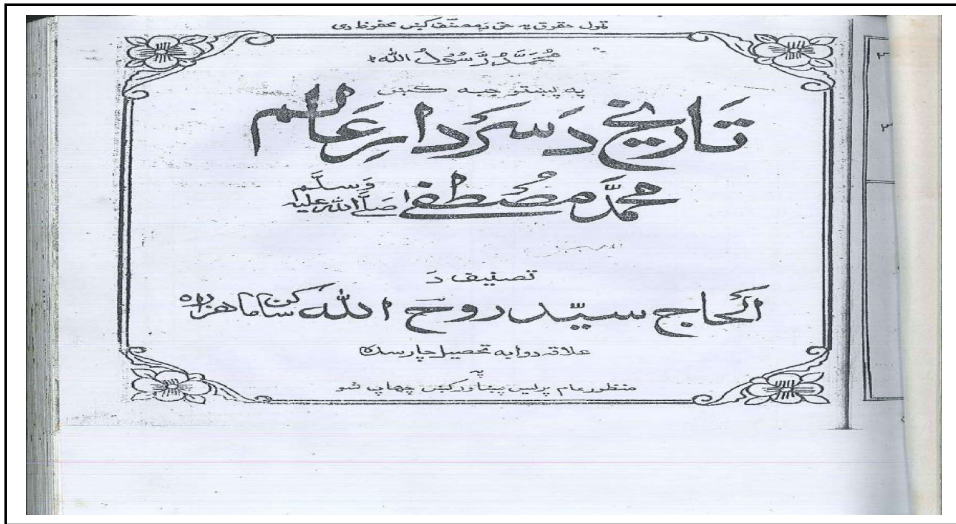 ټول حقوق په حق د مصنف کښې محفوظ دی
مُحَمَّدٌ رَّسُوْلُ اللّٰه
په پښتو جبه کښې
تاریخ د سردارِ عالم
محمد مصطفےٰ صلی اللہ علیہ وسلم
تصنیف د
الحاج سیّد روح اللہ ساکن
علاقه دوابه تحصیل چارسده
په
منظور عام پریس پېښاور کښې چهاپ شو
٢
٣